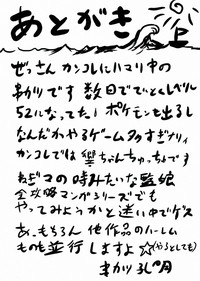 あとがき
ぜっさんカンコレにハマり中の
です 数日でていとくレベル
52になってた! ポケモンも出るし
なんだかやるゲーム多すぎナリィ
カンコレでは 響ちゃんちゃっちょです
ねぎマの時みたいな艦娘
全攻略マンガシリーズでも
やってみようかと迷い中でゲス
あ、もちろん 他作品のハーレム
ものも並行しますよ☆(やるとしても)